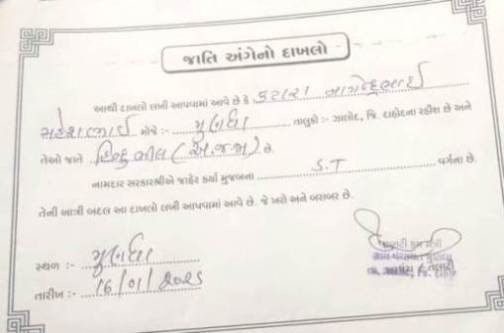 જાતિ અંગેનો દાખલો
આથી દાખલો લખી આપવામાં આવે છે કે કટારા
મોજે :- મુણધા તાલુકો :- ઝાલોદ, જિ. દાહોદના રહીશ છે અને
તેઓ જાતે હિન્દુ ભીલ (અ.જ.જા) છે.
નામદાર સરકારશ્રીએ જાહેર કર્યા મુજબના S.T વર્ગના છે.
તેની ખાત્રી બદલ આ દાખલો લખી આપવામાં આવે છે. જે ખરો અને બરાબર છે.
સ્થળ :- મુણધા
તારીખ :- 16/01/2025